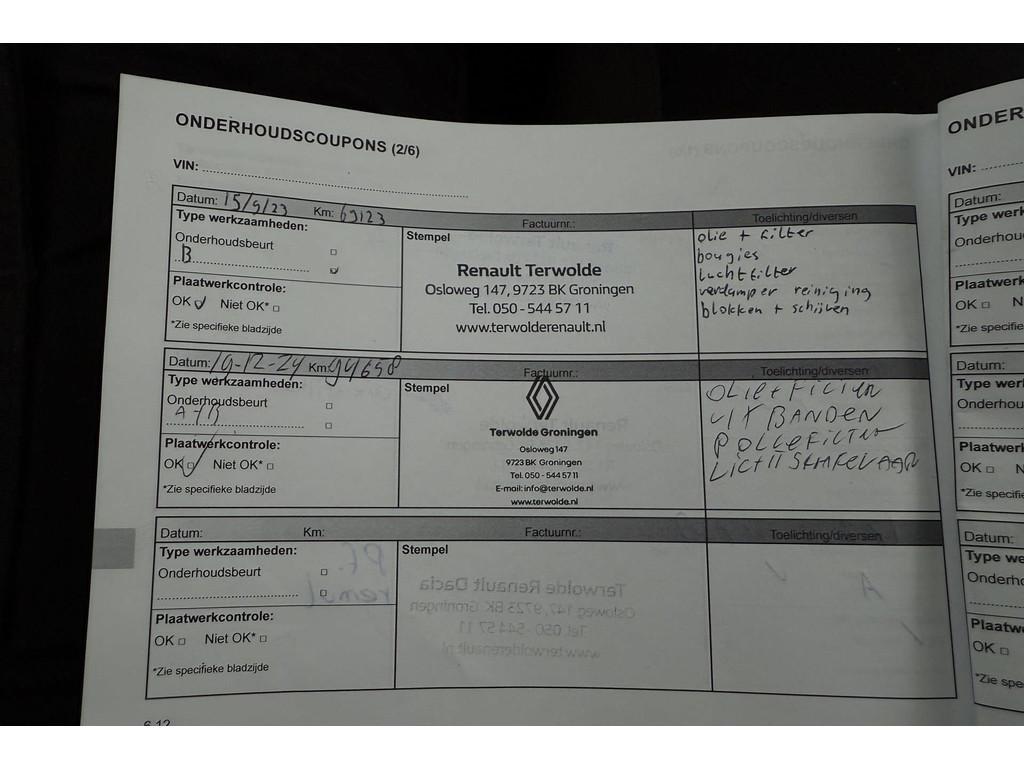 ONDERHOUDSCOUPONS (2/6)
VIN:
Datum: 15/9/23 Km: 69123 Factuurnr.: Toelichting/diversen
Type werkzaamheden:
Onderhoudsbeurt
B
Plaatwerkcontrole:
OK Niet OK*
*Zie specifieke bladzijde
Stempel
Renault Terwolde
Osloweg 147, 9723 BK Groningen
Tel. 050 - 544 57 11
www.terwolderenault.nl
olie + filter
bougies
luchtfilter
verdamper reiniging
blokken + schijven
Datum: 19-12-24 Km: 94658 Factuurnr.: Toelichting/diversen
Type werkzaamheden:
Onderhoudsbeurt
A+B
Plaatwerkcontrole:
OK Niet OK*
*Zie specifieke bladzijde
Stempel
Terwolde Groningen
Osloweg 147
9723 BK Groningen
Tel. 050 - 544 57 11
E-mail: info@terwolde.nl
www.terwolde.nl
BANDEN
POLLEFILTER
Datum: Km: Factuurnr.: Toelichting/diversen
Type werkzaamheden:
Onderhoudsbeurt
Plaatwerkcontrole:
OK Niet OK*
*Zie specifieke bladzijde
Stempel
6.12
ONDER
VIN:
Datum:
Type werk
Onderhou
Plaatwe
OK N
*Zie specifie
Datum:
Type werk
Onderhou
Plaatwe
OK N
*Zie specifi
Datum:
Type we
Onderh
Plaatw
OK
*Zie spe